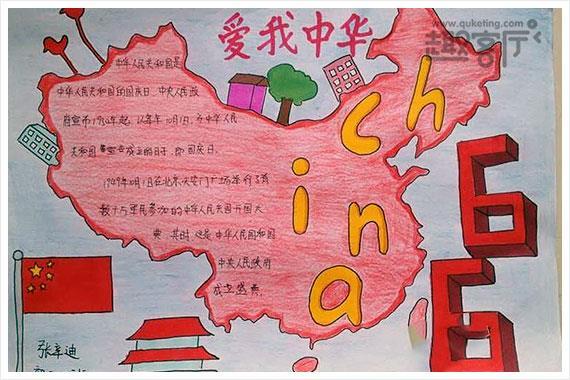 www.quketing.com
趣客厅
爱我中华
中华人民共和国是
中华人民共和国的国庆日、中央人民政
府宣布1950年起,以每年10月1日,为中华人民
共和国宣告成立的日子,即国庆日。
1949年10月1日在北京天安门广场举行了有
数十万军民参加的中华人民共和国开国大
典.其时 这是中华人民国和国
中央人民政府
成立盛典.
china
66
张辛迪